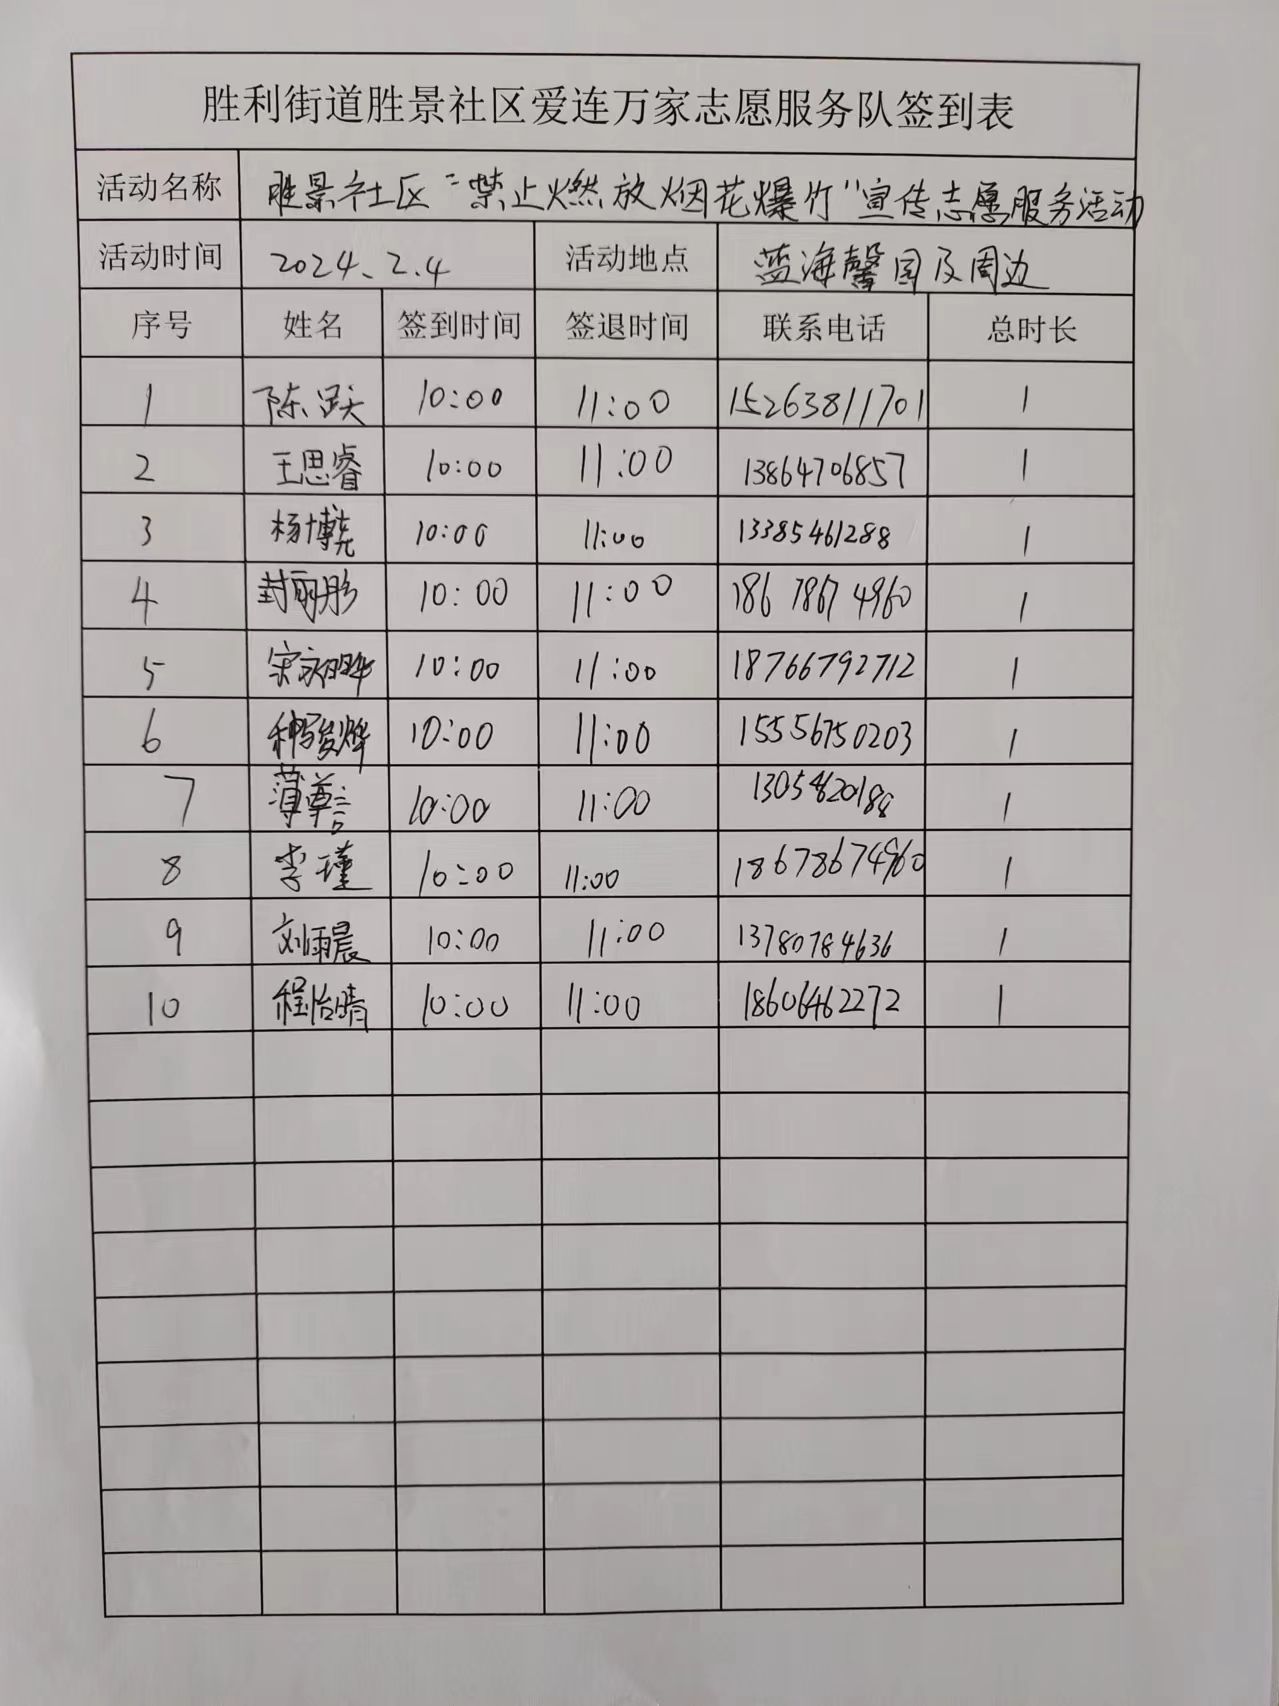 胜利街道胜景社区爱连万家志愿服务队签到表
活动名称 胜景社区"禁止燃放烟花爆竹"宣传志愿服务活动
活动时间 2024.2.4 活动地点 蓝海馨园及周边
序号 姓名 签到时间 签退时间 联系电话 总时长
1 陈跃 10:00 11:00 15263811701 1
2 王思睿 10:00 11:00 13864706857 1
3 杨博尧 10:00 11:00 13385461288 1
4 封丽彤 10:00 11:00 18678674960 1
5 10:00 11:00 18766792712 1
6 种骏烨 10:00 11:00 15556750203 1
7 10:00 11:00 1
8 李瑾 10:00 11:00 18678674960 1
9 刘雨晨 10:00 11:00 13780784636 1
10 程怡晴 10:00 11:00 18606462272 1